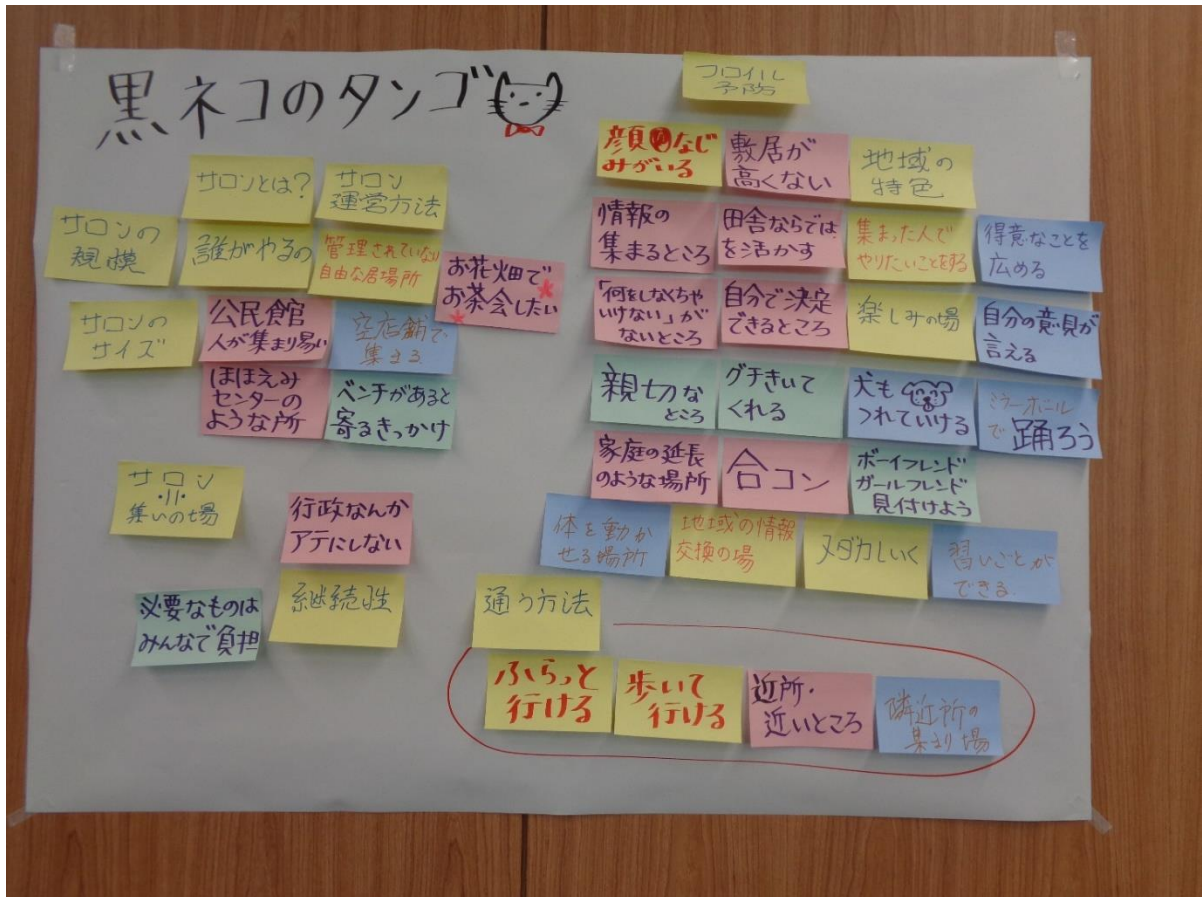 黒ネコのタンゴ
フロイル
予防
サロンとは?
サロン
運営方法
サロンの
規模
誰がやるの
管理されていない
自由な居場所
お花畑で
お茶会したい
サロンの
サイズ
公民館
人が集まり易い
空店舗で
集まる
ほほえみ
センターの
ような所
ベンチがあると
寄るきっかけ
サロン
集いの場
行政なんか
アテにしない
必要なものは
みんなで負担
継続性
顔なじ
みがいる
敷居が
高くない
地域の
特色
情報の
集まるところ
田舎ならでは
を活かす
集まった人で
やりたいことをする
得意なことを
広める
「何をしなくちゃ
いけない」が
ないところ
自分で決定
できるところ
楽しみの場
自分の意見が
言える
親切な
ところ
グチきいて
くれる
犬も
つれていける
ミラーボール
で踊ろう
家庭の延長
のような場所
合コン
ボーイフレンド
ガールフレンド
見付けよう
体を動か
せる場所
地域の情報
交換の場
メダカしいく
習いごとが
できる
通う方法
ふらっと
行ける
歩いて
行ける
近所・
近いところ
隣近所の
集まり場